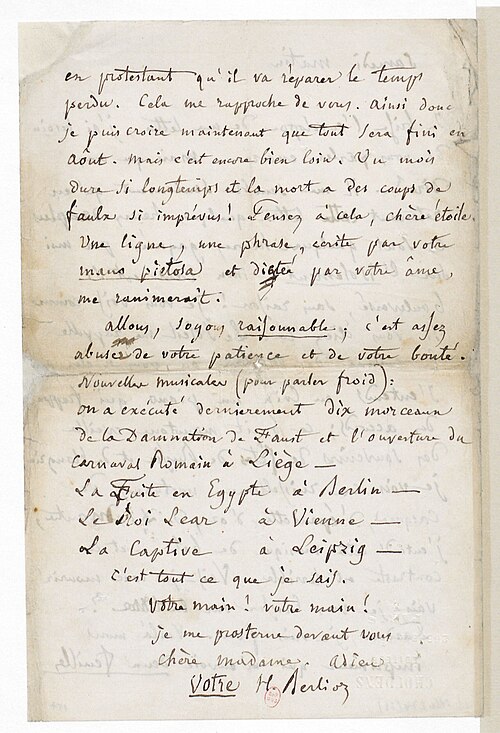 en protestant qu'il va réparer le temps
perdu. Cela me rapproche de vous. ainsi donc
je puis croire maintenant que tout sera fini en
Août. mais c'est encore bien loin. Un mois
dure si longtemps et la mort a des coups de
faulx si imprévus! Pensez à cela, chère étoile.
Une ligne, une phrase, écrite par votre
mano pietosa et dictée par votre âme,
me ranimerait.
allons, soyons raisonnable; c'est assez
abuser de votre patience et de votre bonté.
Nouvelles musicales (pour parler froid):
on a executé dernierement dix morceaux
de la Damnation de Faust et l'ouverture du
Carnaval Romain à Liège —
La Fuite en Egypte à Berlin —
Le Roi Lear à Vienne —
La Captive à Leipzig —
c'est tout ce que je sais.
Votre main! votre main!
je me prosterne devant vous
chère madame. adieu
Votre H. Berlioz